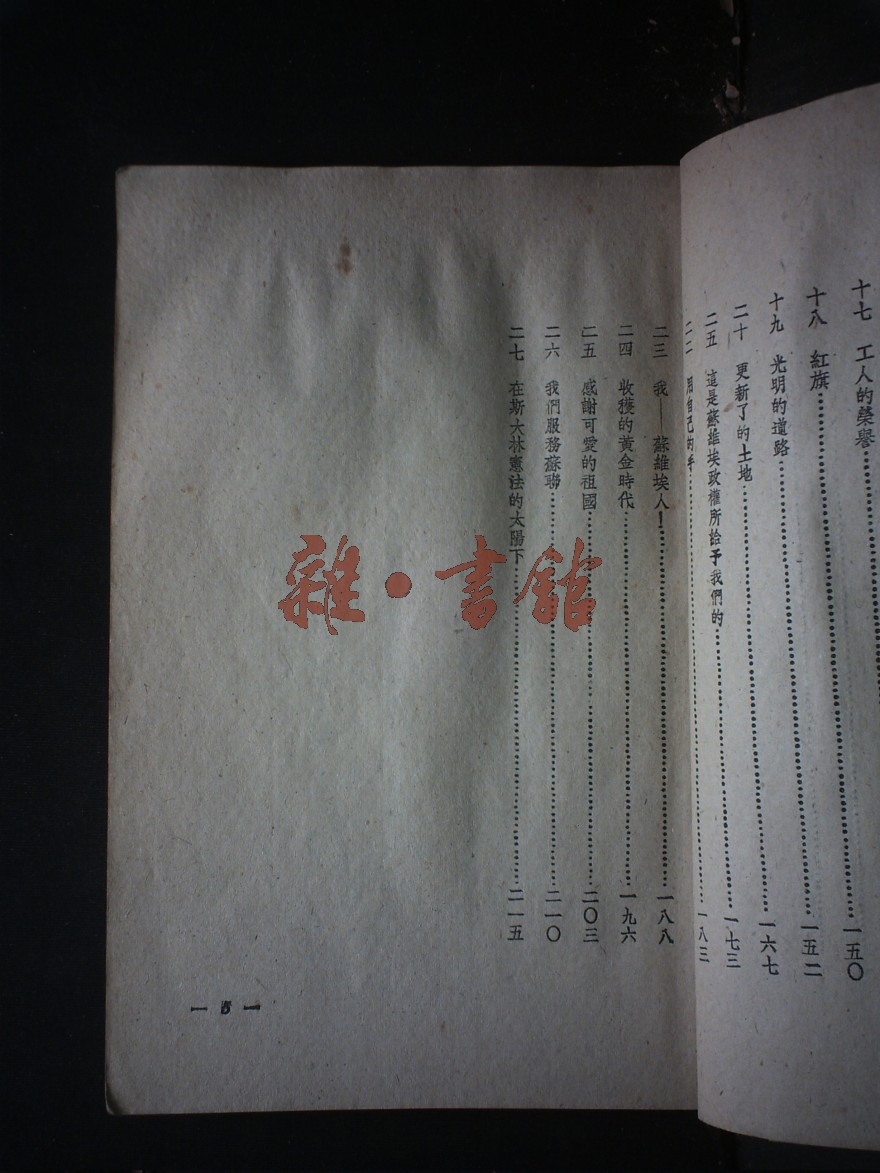 十七 工人的榮譽……
十八 紅旗……一五〇
十九 光明的道路……一五二
二十 更新了的土地……一六七
二五 這是蘇維埃政權所給予我們的……一七三
二二 用自己的手……一八三
二三 我—蘇維埃人！……一八八
二四 收獲的黃金時代……一九六
二五 感謝可愛的祖國……二〇三
二六 我們服務蘇聯……二一〇
二七 在斯大林憲法的太陽下……二一五
雜·書館